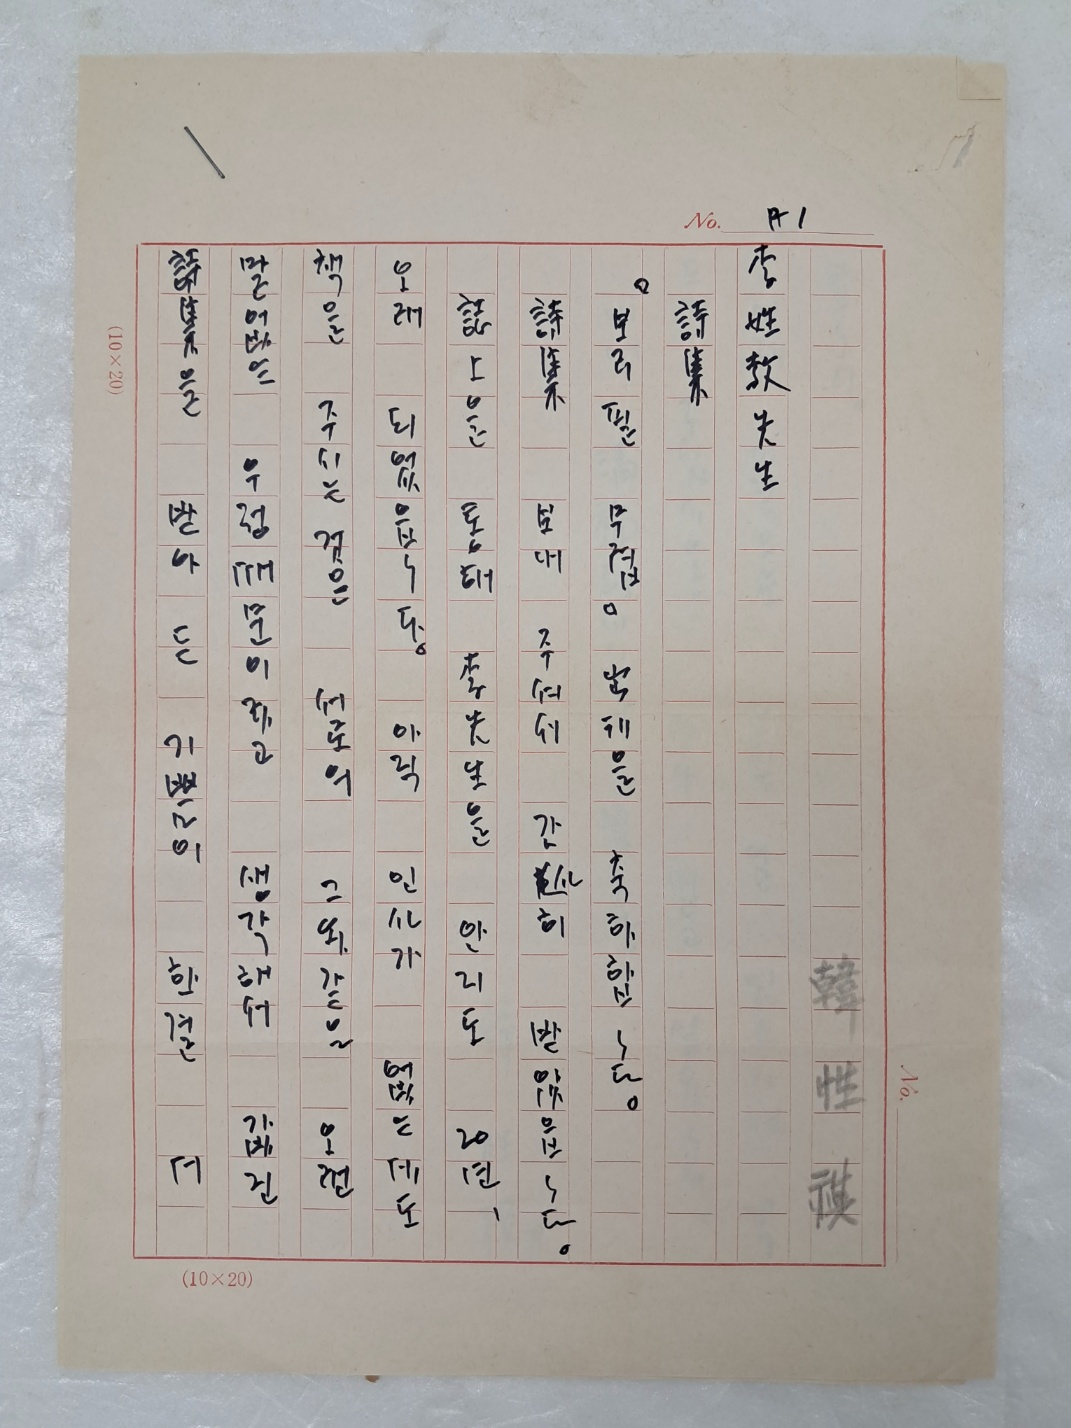 No. A-1
韓性祺
李姓敎先生
詩集
。보리필 무렵。 축하합니다。
詩集 보내 주셔서 감사히 받았읍니다。
誌上을 통해 李先生을 안지도 20년、
오래 되었읍니다。 아직 인사가 없는데도
책을 주시는 것은 서로의 그와 같은 오랜
말없는 우정 때문이라고 생각해서
詩集을 받아 든 기쁨이 한결 더
No.
(10×20)
(10×20)